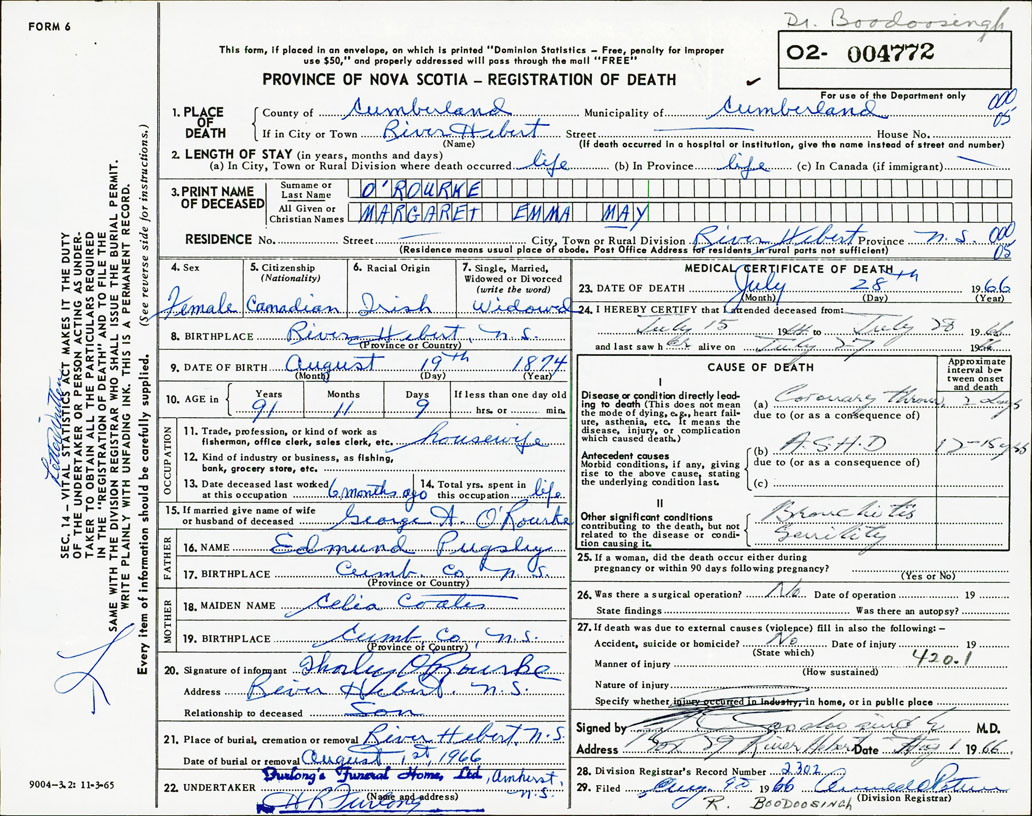 FORM 6
Dr. Boodoosingh
This form, if placed in an envelope, on which is printed "Dominion Statistics – Free, penalty for improper
use $50," and properly addressed will pass through the mail "FREE"
02- 004772
PROVINCE OF NOVA SCOTIA – REGISTRATION OF DEATH
For use of the Department only
000
05
1. PLACE OF DEATH
County of Cumberland Municipality of Cumberland
If in City or Town River Hebert Street House No.
(Name) (If death occurred in a hospital or institution, give the name instead of street and number)
2. LENGTH OF STAY (in years, months and days)
(a) In City, Town or Rural Division where death occurred life (b) In Province life (c) In Canada (if immigrant)
3. PRINT NAME OF DECEASED
Surname or Last Name O'ROURKE
All Given or Christian Names MARGARET EMMA MAY
RESIDENCE No. Street City, Town or Rural Division River Hebert Province N.S. 000
05
(Residence means usual place of abode. Post Office Address for residents in rural parts not sufficient)
4. Sex Female
5. Citizenship (Nationality) Canadian
6. Racial Origin Irish
7. Single, Married, Widowed or Divorced (write the word) Widowed
8. BIRTHPLACE River Hebert, N.S.
(Province or Country)
9. DATE OF BIRTH August 19th 1874
(Month) (Day) (Year)
10. AGE in Years Months Days If less than one day old
91 11 9 hrs. or min.
OCCUPATION
11. Trade, profession, or kind of work as
fisherman, office clerk, sales clerk, etc. housewife
12. Kind of industry or business, as fishing,
bank, grocery store, etc.
13. Date deceased last worked at this occupation 6 months ago
14. Total yrs. spent in this occupation life
15. If married give name of wife
or husband of deceased George A. O'Rourke
FATHER
16. NAME Edmund Pugsley
17. BIRTHPLACE Cumb. Co N.S.
(Province or Country)
MOTHER
18. MAIDEN NAME Celia Coates
19. BIRTHPLACE Cumb. Co, N.S.
(Province of Country)
20. Signature of informant O'Rourke
Address River Hebert, N.S.
Relationship to deceased Son
21. Place of burial, cremation or removal River Hebert N.S.
Date of burial or removal August 1st, 1966
Furlong's Funeral Home, Ltd, Amherst,
N.S.
22. UNDERTAKER H R Furlong
(Name and address)
MEDICAL CERTIFICATE OF DEATH
23. DATE OF DEATH July 28th 1966
(Month) (Day) (Year)
24. I HEREBY CERTIFY that I attended deceased from:
July 15 19 to July 28 1966
and last saw her alive on July 27 1966
CAUSE OF DEATH
Approximate interval between onset and death
I
Disease or condition directly leading to death (This does not mean the mode of dying, e.g., heart failure, asthenia, etc. It means the disease, injury, or complication which caused death.)
(a) Coronary days
due to (or as a consequence of)
Antecedent causes
Morbid conditions, if any, giving rise to the above cause, stating the underlying condition last.
(b) A.S.H.D
due to (or as a consequence of)
(c)
II
Other significant conditions
contributing to the death, but not related to the disease or condition causing it.
Bronchitis
Senility
25. If a woman, did the death occur either during
pregnancy or within 90 days following pregnancy?
(Yes or No)
26. Was there a surgical operation? No Date of operation 19
State findings Was there an autopsy?
27. If death was due to external causes (violence) fill in also the following:–
Accident, suicide or homicide? No Date of injury 19
(State which) 420.1
Manner of injury
(How sustained)
Nature of injury
Specify whether injury occurred in industry, in home, or in public place
Signed by Boodoosingh M.D.
Address Box 39 River Hebert Date Aug 1 1966
28. Division Registrar's Record Number 2302
29. Filed Aug 1966
(Division Registrar)
R. BOODOOSINGH
SEC. 14 – VITAL STATISTICS ACT MAKES IT THE DUTY
OF THE UNDERTAKER OR PERSON ACTING AS UNDER-
TAKER TO OBTAIN ALL THE PARTICULARS REQUIRED
IN THE "REGISTRATION OF DEATH" AND TO FILE THE
SAME WITH THE DIVISION REGISTRAR WHO SHALL ISSUE THE BURIAL PERMIT.
WRITE PLAINLY WITH UNFADING INK. THIS IS A PERMANENT RECORD.
Every item of information should be carefully supplied. (See reverse side for instructions.)
9004–3.2: 11-3-65